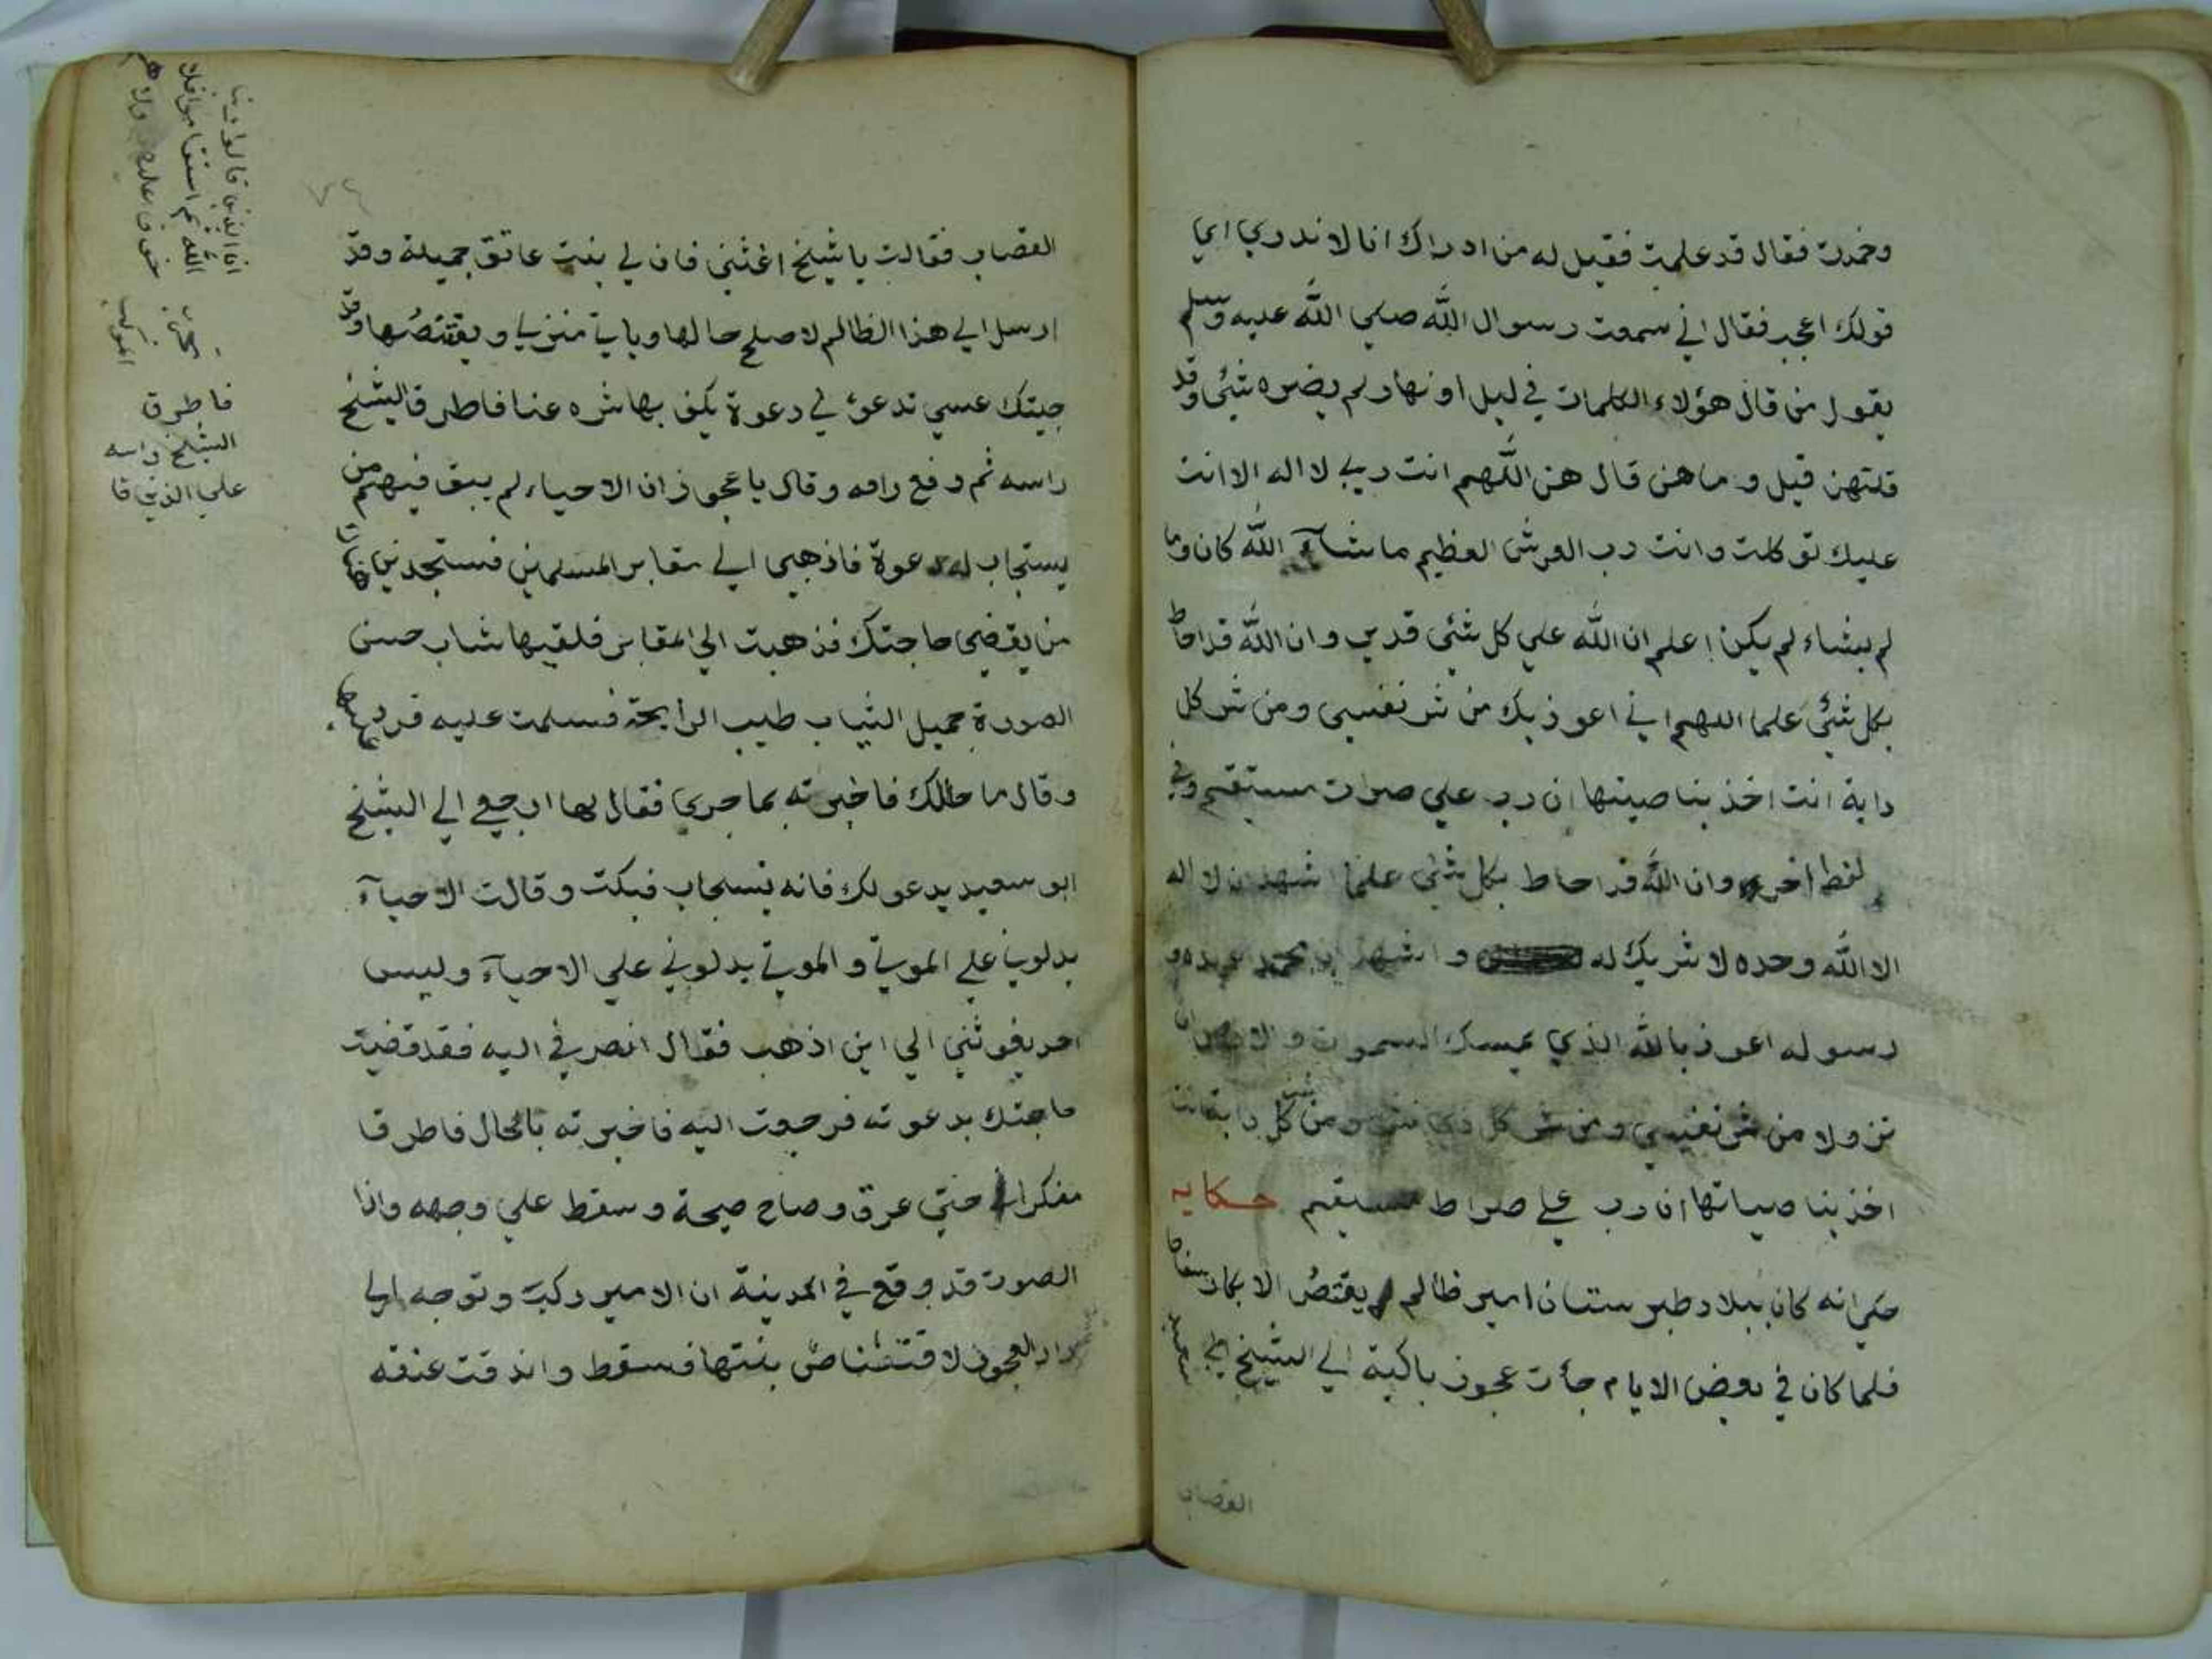 وخمدت فقال قد علمت فقيل له من ادراك انا لا ندري اي
قولك اعجب فقال اني سمعت رسوال الله صلي الله عليه وسلم
يقول من قال هؤلاء الكلمات في ليل او نهار لم يضره شئي وقد
قلتهن قيل وما هن قال هن اللهم انت ربي لا اله الا انت
عليك توكلت وانت رب العرش العظيم ما شآء الله كان وما
لم يشاء لم يكن اعلم ان الله علي كل شئي قدير وان الله قد احاط
بكل شئي علما اللهم اني اعوذ بك من شر نفسي ومن شر كل
دابة انت اخذ بناصيتها ان رب علي صرات مستقيم وفي
لفط اخري وان الله قد احاط بكل شئي علما اشهد ان لا اله
الا الله وحده لا شريك له واشهد ان محمد عبده و
رسوله اعوذ بالله الذي يمسك السموت والارض ان
تزولا من شر نفسي ومن شر كل ذي شر ومن شر كل دابة انت
اخذ بناصياتها ان رب علي صراط مستقيم حكايه
حكي انه كان ببلاد طبرستان امير ظالم يقتض الابكار سفاحا
فلما كان في بعض الايام جأت عجوز باكية الي الشيخ ابي سعيد
القصاب
القصاب فقالت يا شيخ اغثني فان لي بنت عاتق جميلة وقد
ارسل الي هذا الظالم لاصلح حالها وياتي منزلي ويقتضها وقد
جيتك عسي تدعو لي دعوة يكف بها شره عنا فاطرق الشيخ
راسه ثم رفع راسه وقال يا عجوز ان الاحياء لم يبق فيهم من
يستجاب له دعوة فاذهبي الي مقابر المسلمين فستجدين هناك
من يقضي حاجتك فذهبت الي المقابر فلقيها شاب حسن
الصورة جميل الثياب طيب الرايحة فسلمت عليه فرد عليها
وقال ما حالك فاخبرته بما جري فقال لها ارجعي الي الشيخ
ابو سعيد يدعو لك فانه يستجاب فبكت وقالت الاحيآء
يدلوني علي الموتي والموتي يدلوني علي الاحيآء وليس
احد يغوثني الي اين اذهب فقال انصرفي اليه فقد قضيت
حاجتك بدعوته فرجعت اليه فاخبرته بالحال فاطرقا
مفكرا حتي عرق وصاح صيحة وسقط علي وجهه واذا
الصوت قد وقع في المدينة ان الامير ركب وتوجه الي
دار العجوز لاقتناص بنتها فسقط واندقت عنقه
فاطرق
الشيخ راسه
علي الذين قا